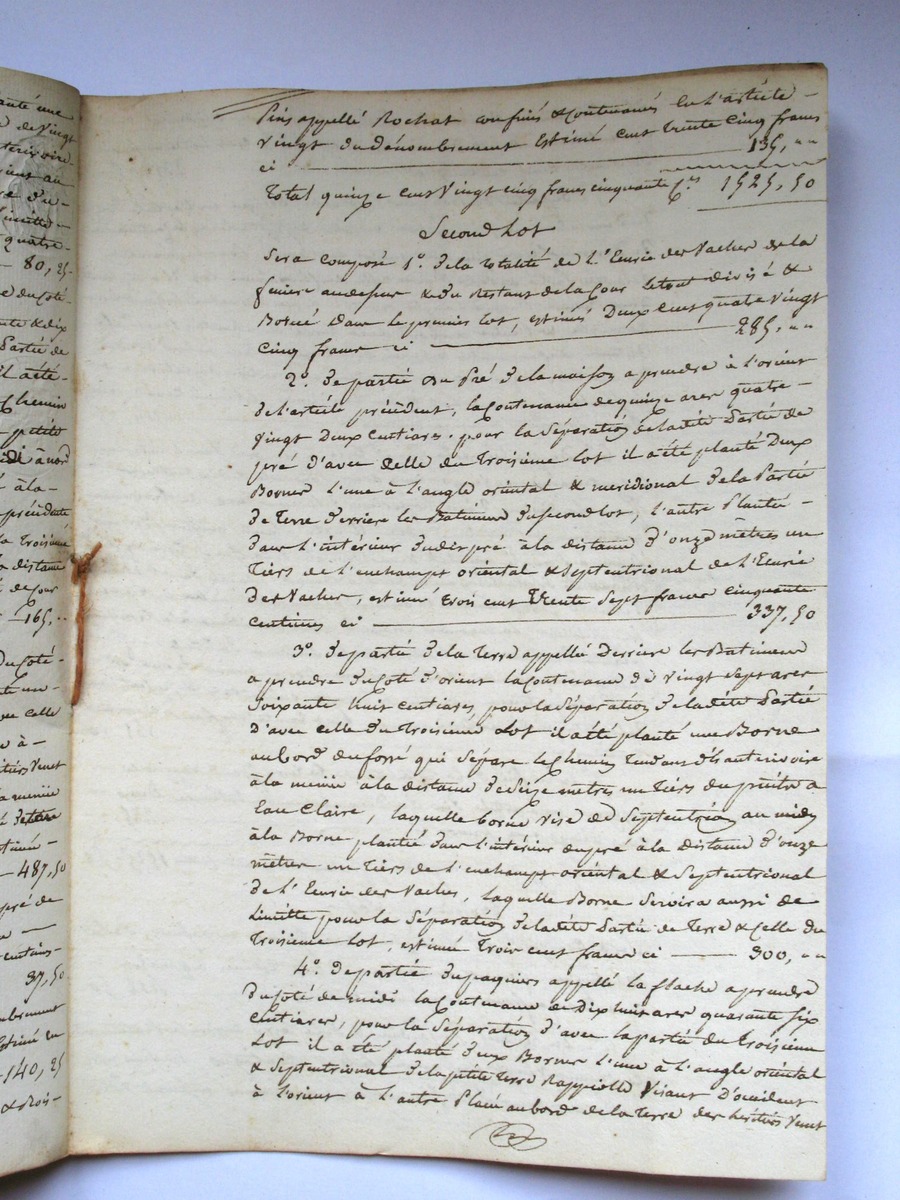 anté une
e de Vingt
80, 25
ute & dix
Partie de
il a été
Chemin
petite
di à nord
à la
précédente
la troisième
la distance
de Cour
165, ..
Du Coté
celle
487,50
pré de
37,50
Estimé Cu
140, 25
Pins appellé Rochat confinés & Contenancés En l'article
Vingt du dénombrement Estimé Cent trente Cinq francs
ci 135, " "
Total quinze Cent Vingt Cinq francs Cinquante Cmes 1525, 50
Second Lot
Sera Composé 1º. De la totalité de L'Ecurie des Vaches de la
feniere au dessus & du Restant de la Cour le tout divisé &
Borné Dans le premier Lot, estimés Deux Cent quatre Vingt
Cinq francs ci 285, " "
2º. De partie du Pré De la maison a prendre à L'orient
De L'article précédent, la Contenance de quinze ares quatre
Vingt Deux Centiares, pour la Séparation de ladite Partie de
pré D'avec Celle du Troisième Lot il a été planté Deux
Bornes L'une à L'angle oriental & méridional De la Partie
De Terre Derriere les Batimens Du Second Lot, L'autre Plantée
Dans L'intérieur Dudit pré à la distance D'onze mètres un
Tiers de L'enchamps oriental & Septentrional de L'Ecurie
Des Vaches, estimé trois Cent Trente Sept francs Cinquante
Centimes ci 337,50
3º. De partie De la Terre appellée Derriere les Batimens
a prendre Du Coté D'orient la Contenance de Vingt Sept ares
Soixante huit Centiares pour la Séparation de ladite Partie
D'avec Celle du Troisième Lot il a été planté une Borne
au bord du fossé qui Sépare le Chemin Tendant d'hauterivoire
à la meniie à la distance De Seize metres un Tiers du
Eau Claire, laquelle borne Vise de Septentrion au midi
à la Borne plantée Dans L'intérieur du pré à la distance D'onze
mètres un Tiers de L'enchamps oriental & Septentrional
De L'Ecurie des Vaches, laquelle Borne Servira aussi de
Limitte pour la Séparation de ladite Partie de Terre & Celle du
Troisième Lot, estimée Trois Cent francs ci 300, " "
4º. De partie Du paquier appellé la flache a prendre
Du Coté de midi la Contenance de Dix huit ares quarante Six
Centiares, pour la Séparation D'avec la partie du Troisième
Lot il a été planté Deux Bornes L'une à L'angle oriental
& Septentrional De la petite Terre Visant D'occident
à L'orient & L'autre Placée au bord de la Terre des héritiers Venet